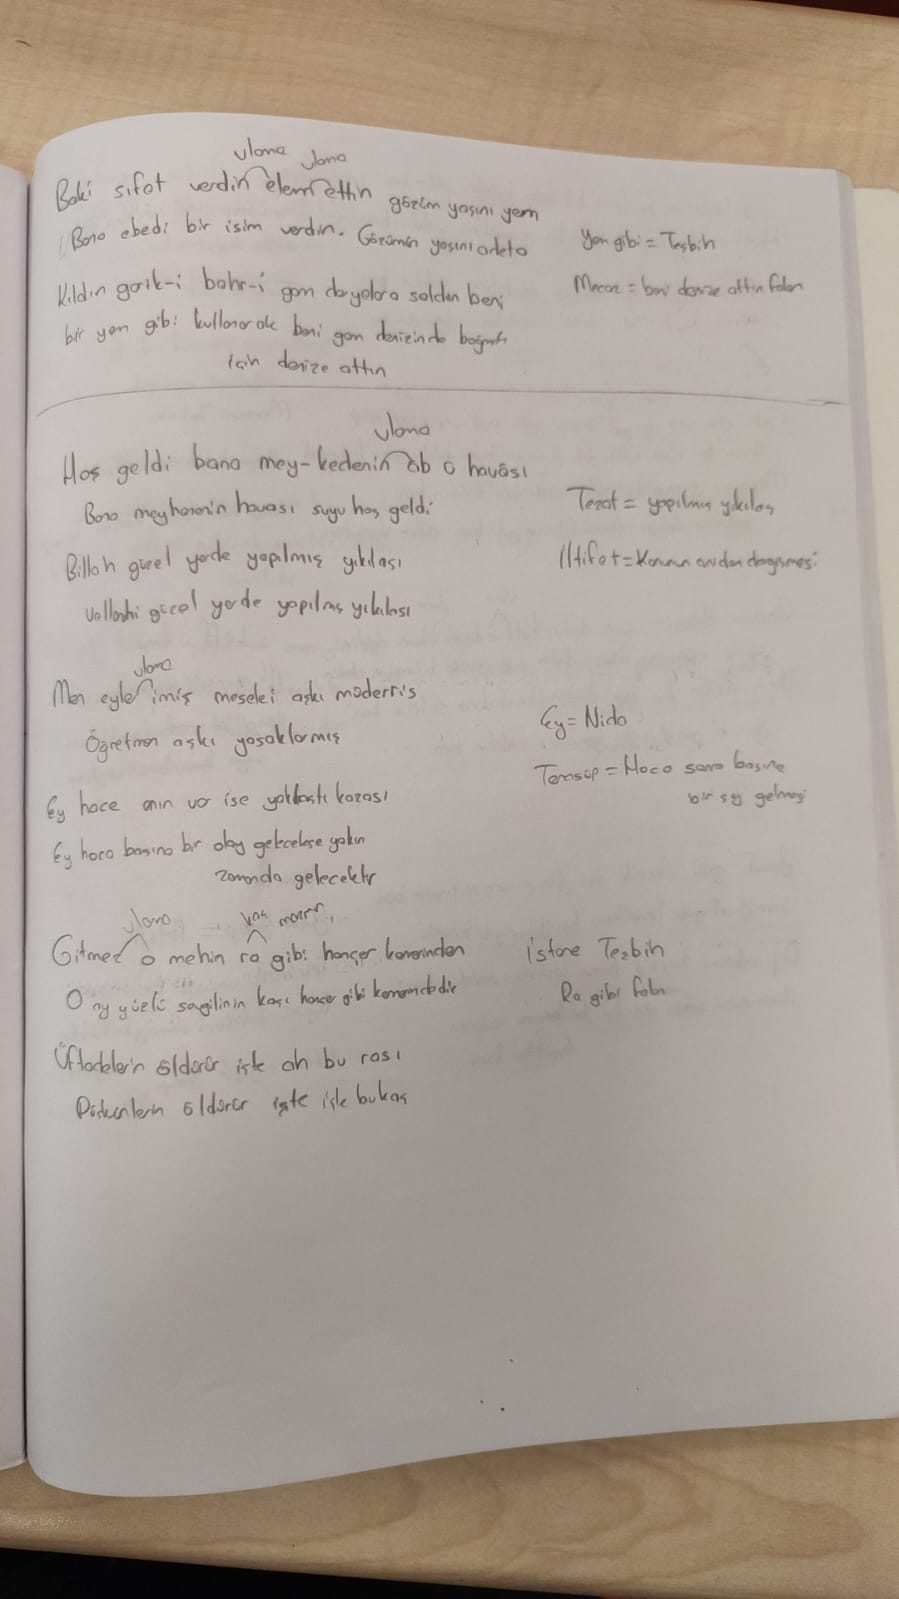 ulama ulama
Baki sıfat verdin elem ettin gözüm yaşını yem
Bana ebedi bir isim verdin. Gözümün yaşını adeta
Yem gibi = Teşbih
Kıldın gark-i bahr-i gam deryalara saldın beni
Mecaz = beni denize attın falan
bir yem gibi kullanarak beni gam denizinde boğmak
için denize attın
ulama
Hoş geldi bana mey-kedenin ab o havâsı
Bana meyhanenin havası suyu hoş geldi
Tezat = yapılmış yıkılası
Billah güzel yerde yapılmış yıkılası
İltifat = Konunun aniden değişmesi
Vallahi güzel yerde yapılmış yıkılası
ulama
Men eyler imiş meselei aşkı müderris
Öğretmen aşkı yasaklarmış
Ey = Nida
Ey hace anın var ise yaklaştı kazası
Tenasüp = Hoca sonra başına
bir şey gelmesi
Ey hoca başına bir olay gelecekse yakın
zamanda gelecektir
ulama kaş
Gitmez o mehin ra gibi hançer kemerinden
İstiare Teşbih
O ay yüzlü sevgilinin kaşı hançer gibi kemerindedir
Ra gibi falan
Üftadelerin öldürür işte ah bu rası
Düşkünlerin öldürür işte işte bu kaş